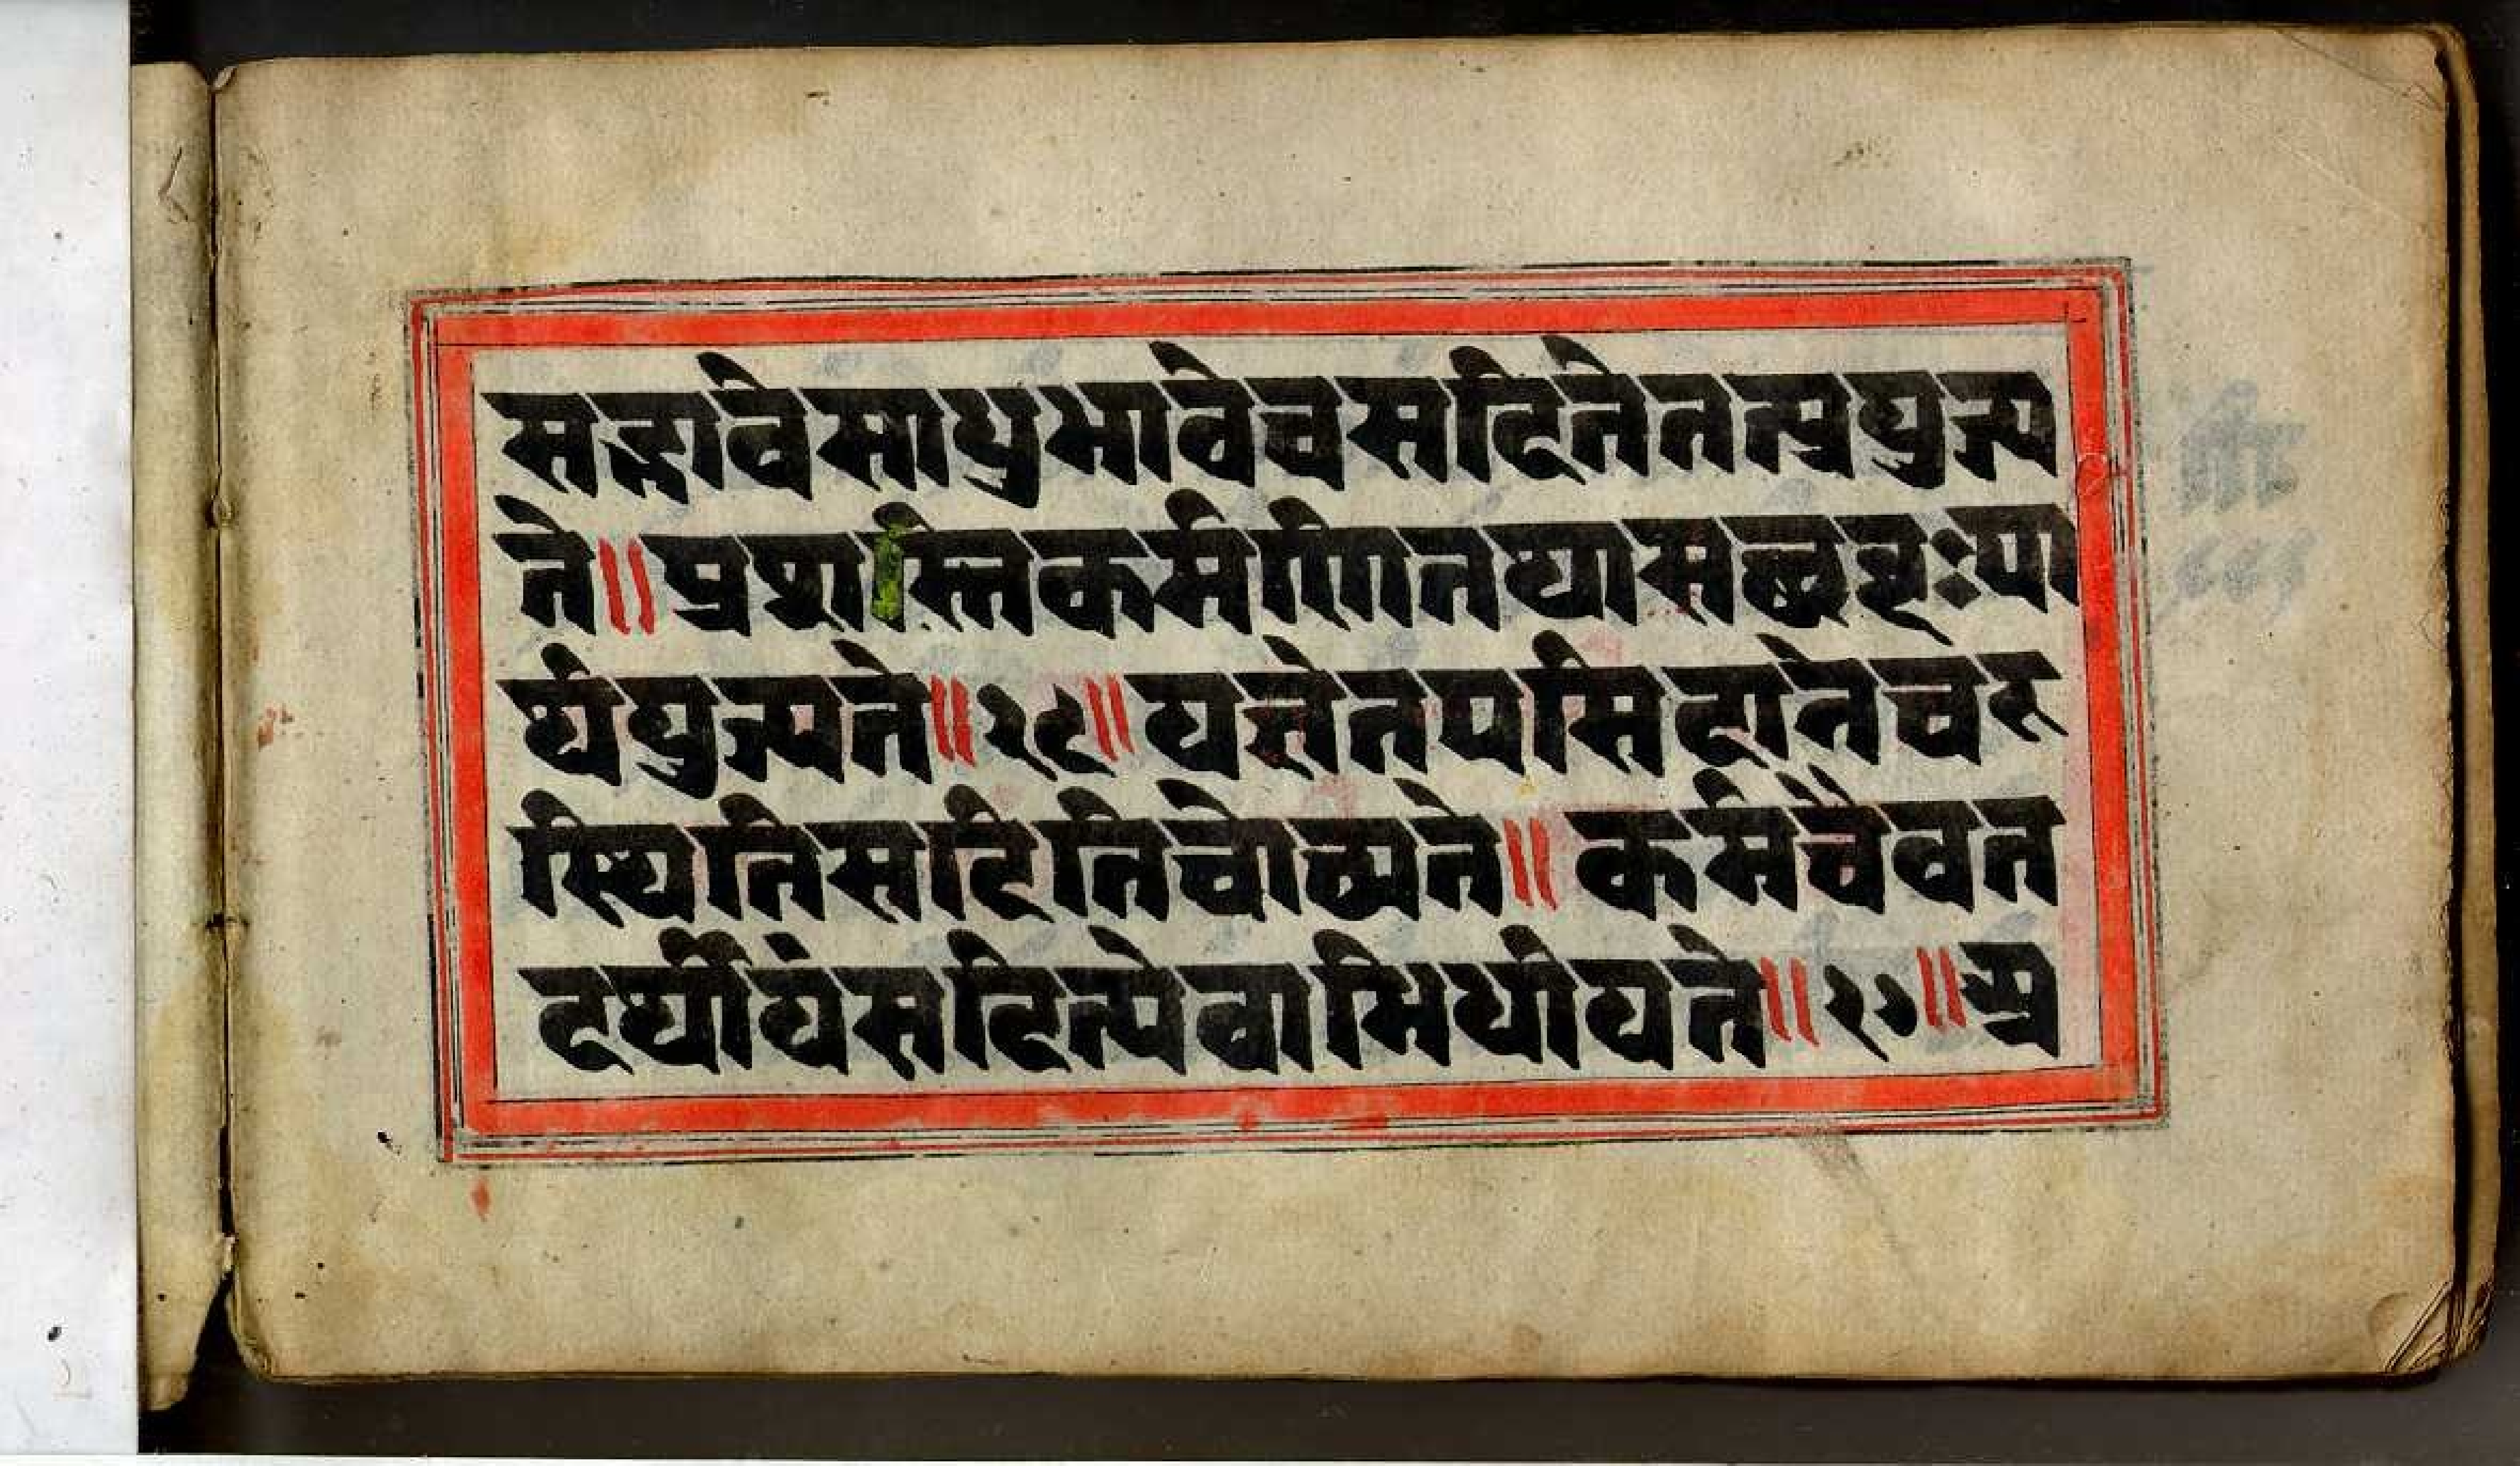 सद्भावेसाधुभावेचसदित्येतत्प्रयुज्य
ते॥प्रशस्तिकर्मणितथासच्छब्दःपा
र्थयुज्यते॥२६॥यज्ञेतपसिदानेचरु
स्थितिसदितिचोच्यते॥कर्मचैवत
दर्थीयंसदित्येवाभिधीयते॥२७॥अ